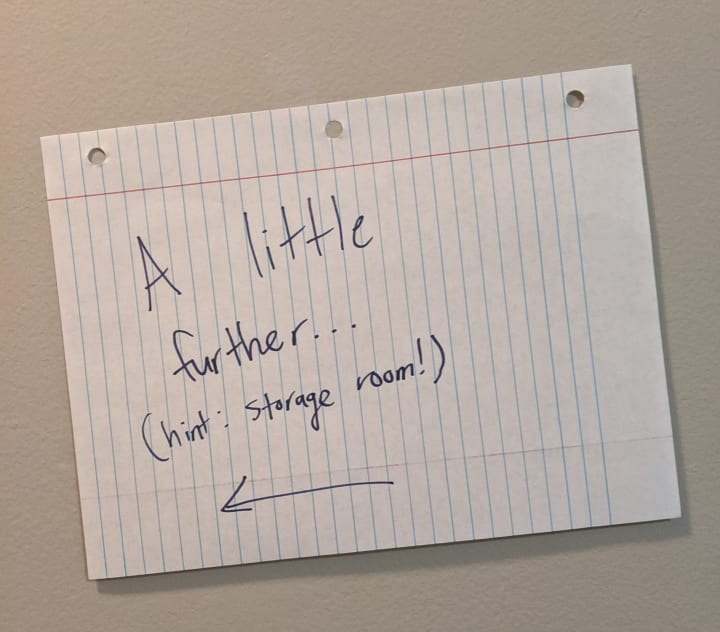 A little
further...
(hint: storage room!)